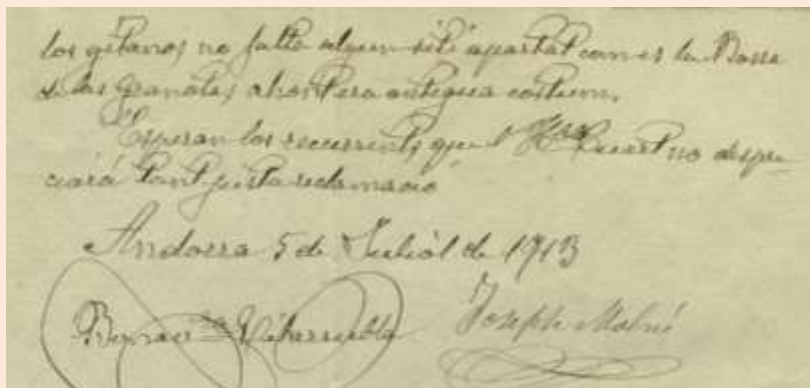 los gitanos no falte algun siti apartat com es la Bassa
de las Granotas ahont era antigua costum.
Esperan los recurrents que l' Hble Quart no despre-
ciará tant justa reclamació
Andorra 5 de Juliól de 1913
Joseph Molné